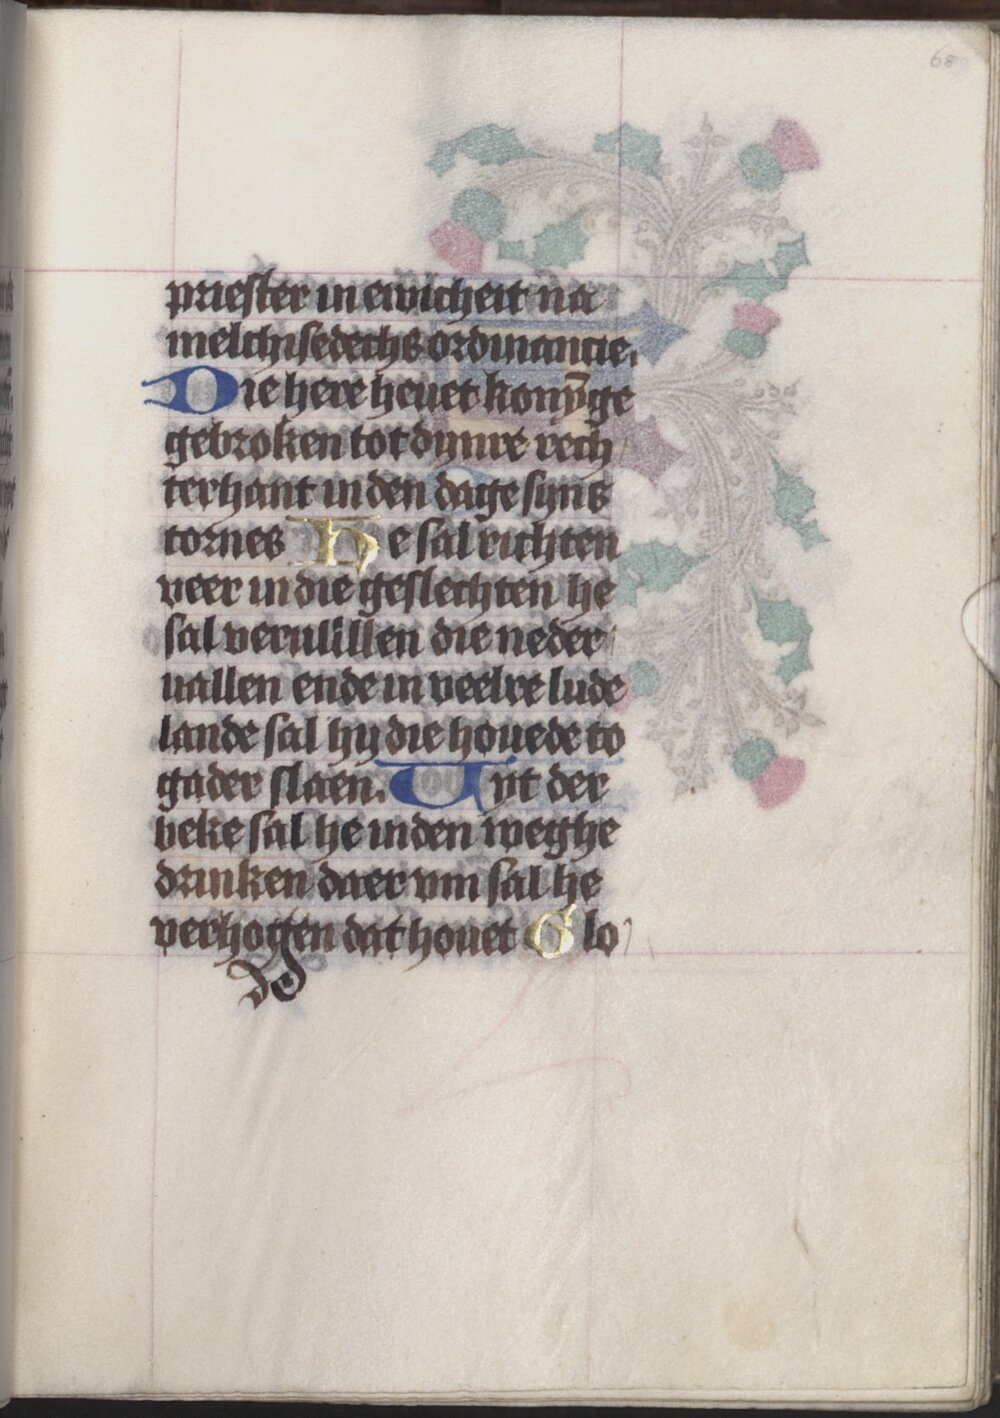 68
priester in ewicheit na
melchisedechs ordinancie.
Die here heuet konȳge
gebroken tot dynre rech
terhant in den dage syns
tornes He sal richten
veer in die geslechten he
sal veruullen die neder
uallen ende in veelre lude
lande sal hy die houede to
gader slaen. Uyt der
beke sal he in den weghe
drinken daer vm sal he
verhogen dat houet Glo